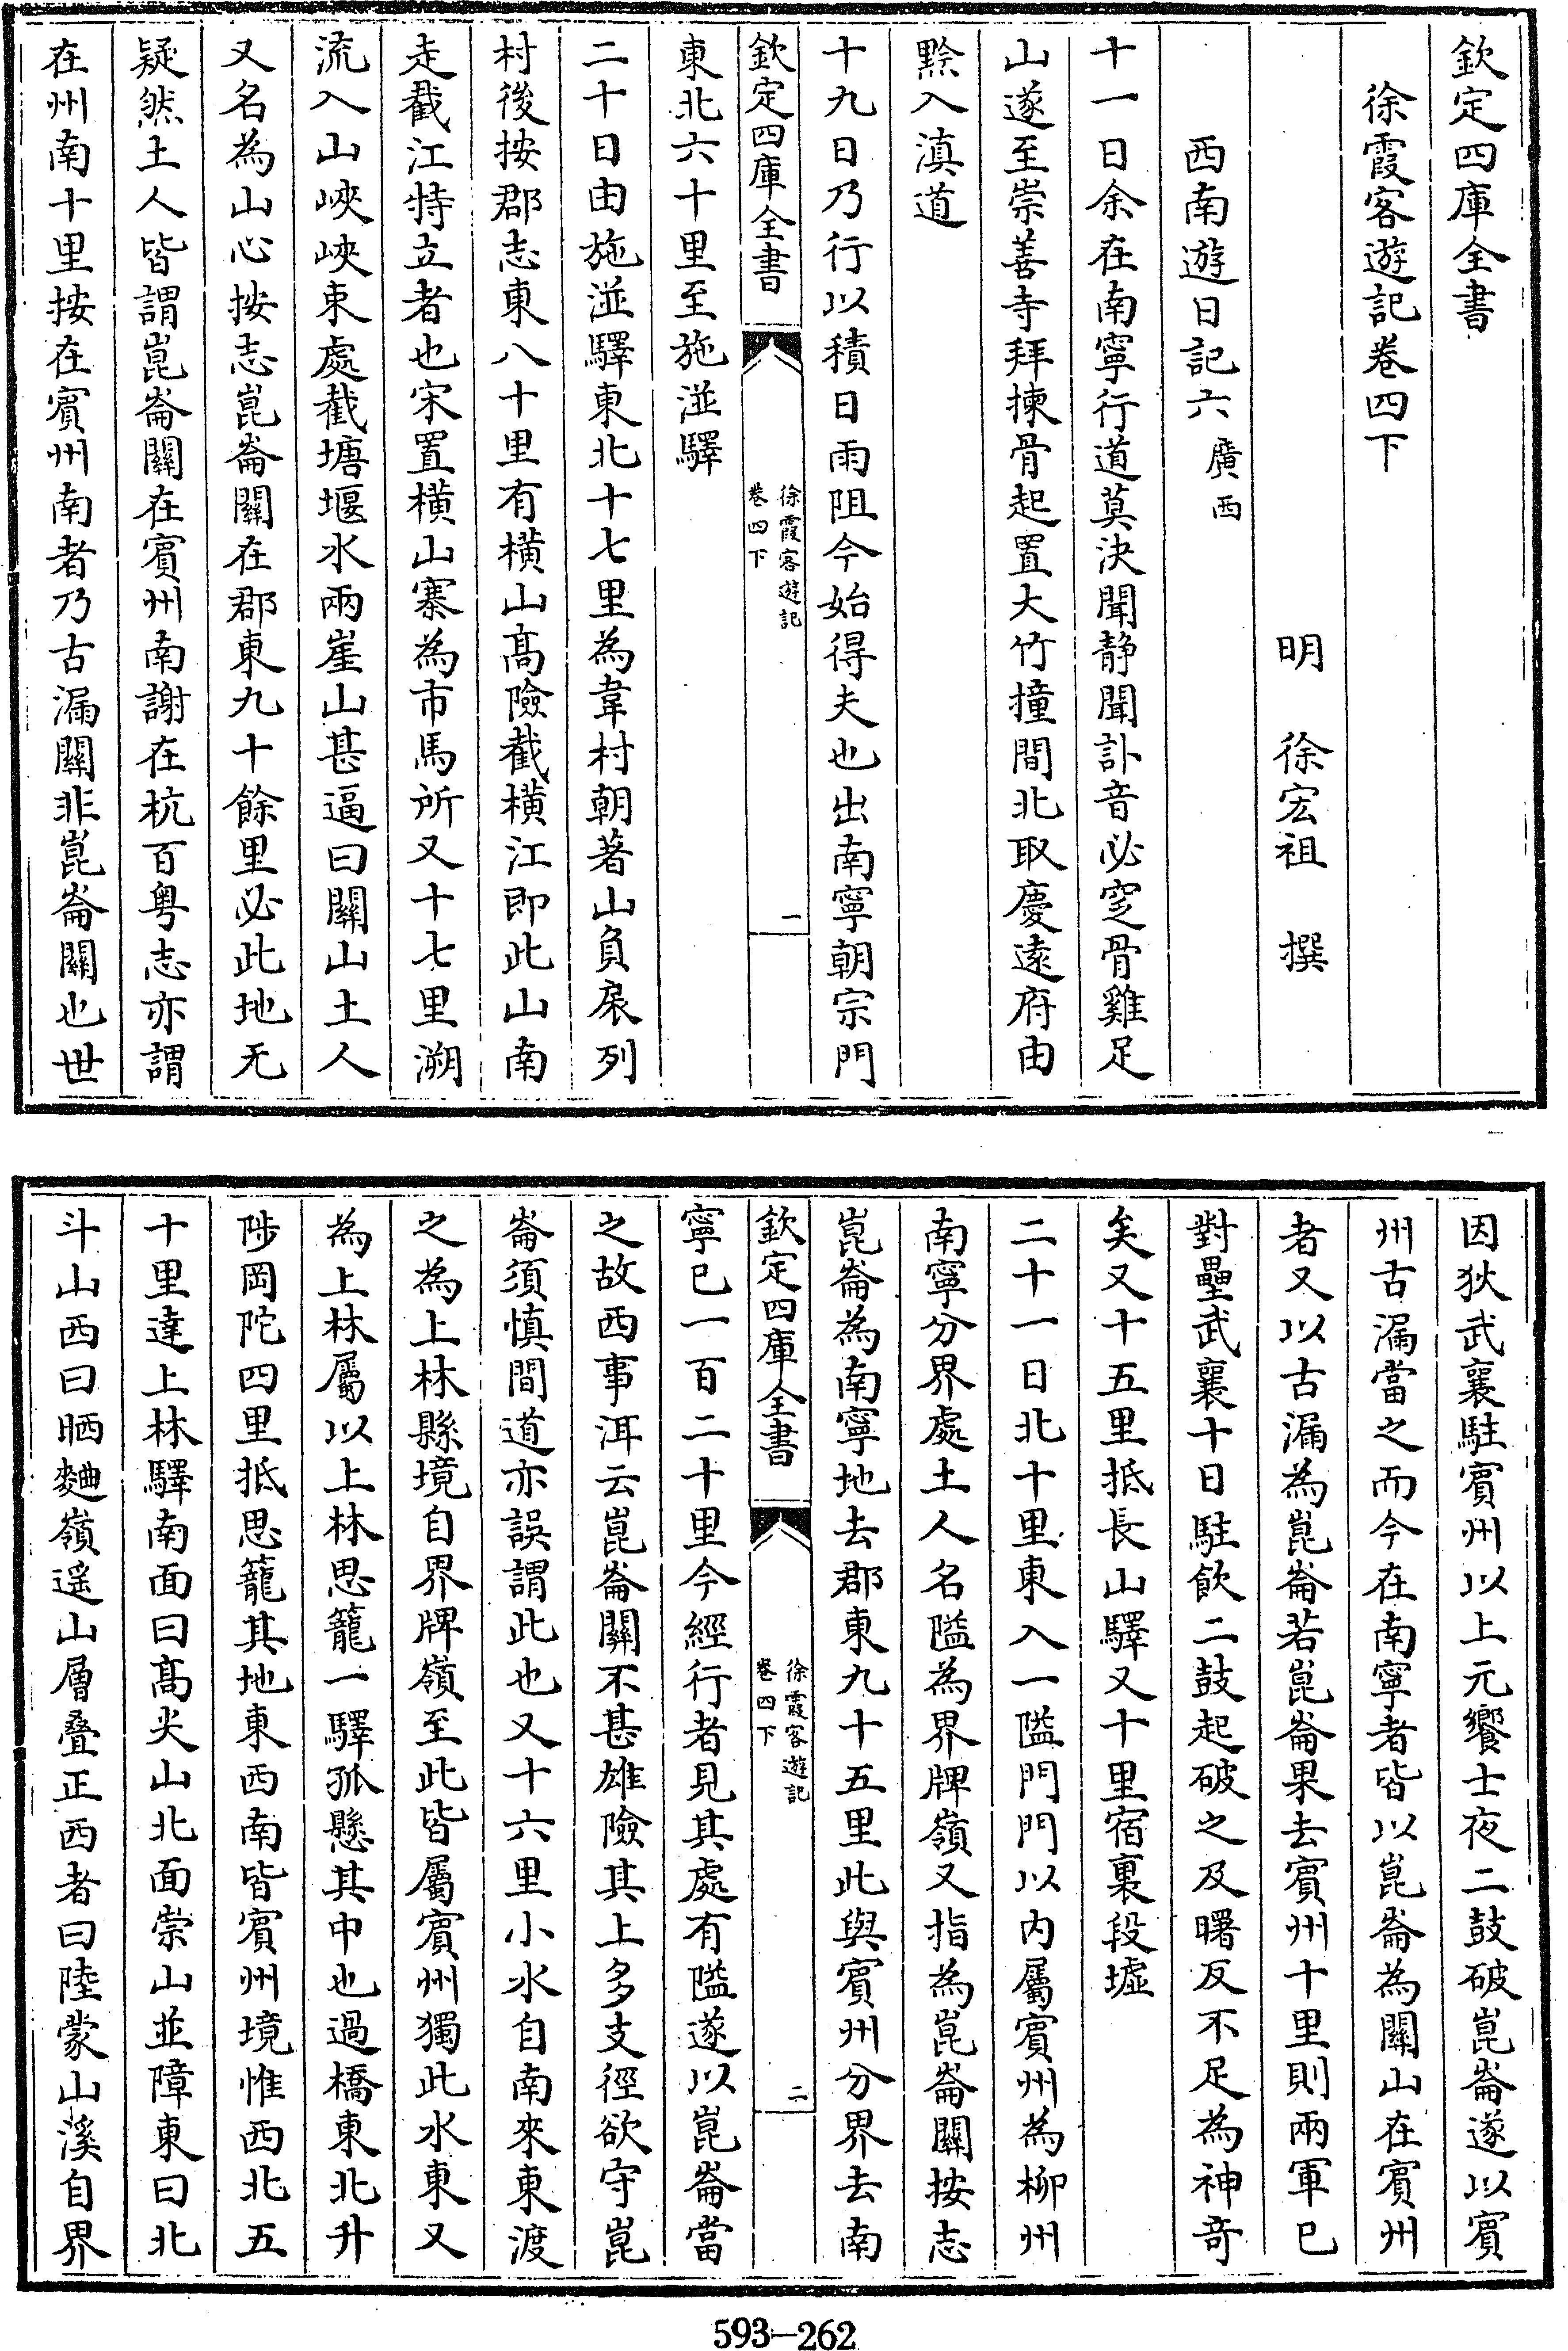 欽定四庫全書
徐霞客遊記卷四下
明　徐宏祖　撰
西南遊日記六廣西
十一日余在南寧行道莫決聞靜聞訃音必窆骨雞足
山遂至崇善寺拜揀骨起置大竹撞間北取慶遠府由
黔入滇道
十九日乃行以積日雨阻今始得夫也出南寧朝宗門
欽定四庫全書
徐霞客遊記
卷四下
一
東北六十里至施湴驛
二十日由施湴驛東北十七里為韋村朝著山負扆列
村後按郡志東八十里有橫山高險截橫江即此山南
走截江特立者也宋置橫山寨為市馬所又十七里溯
流入山峽峽束處截塘堰水兩崖山甚逼曰關山土人
又名為山心按志崑崙關在郡東九十餘里必此地无
疑然土人皆謂崑崙關在賓州南謝在杭百粤志亦謂
在州南十里按在賓州南者乃古漏關非崑崙關也世
因狄武襄駐賓州以上元饗士夜二鼓破崑崙遂以賓
州古漏當之而今在南寧者皆以崑崙為關山在賓州
者又以古漏為崑崙若崑崙果去賓州十里則兩軍已
對壘武襄十日駐飲二鼓起破之及曙反不足為神奇
矣又十五里抵長山驛又十里宿裏段墟
二十一日北十里東入一隘門門以内屬賓州為柳州
南寧分界處土人名隘為界牌嶺又指為崑崙關按志
崑崙為南寧地去郡東九十五里此與賓州分界去南
欽定四庫全書
徐霞客遊記
卷四下
二
寧已一百二十里今經行者見其處有隘遂以崑崙當
之故西事洱云崑崙關不甚雄險其上多支徑欲守崑
崙須慎間道亦誤謂此也又十六里小水自南來東渡
之為上林縣境自界牌嶺至此皆屬賓州獨此水東又
為上林屬以上林思籠一驛孤懸其中也過橋東北升
陟岡陀四里抵思籠其地東西南皆賓州境惟西北五
十里達上林驛南面曰高尖山北面崇山並障東曰北
斗山西曰晒麯嶺遥山層叠正西者曰陸蒙山溪自界
593-262